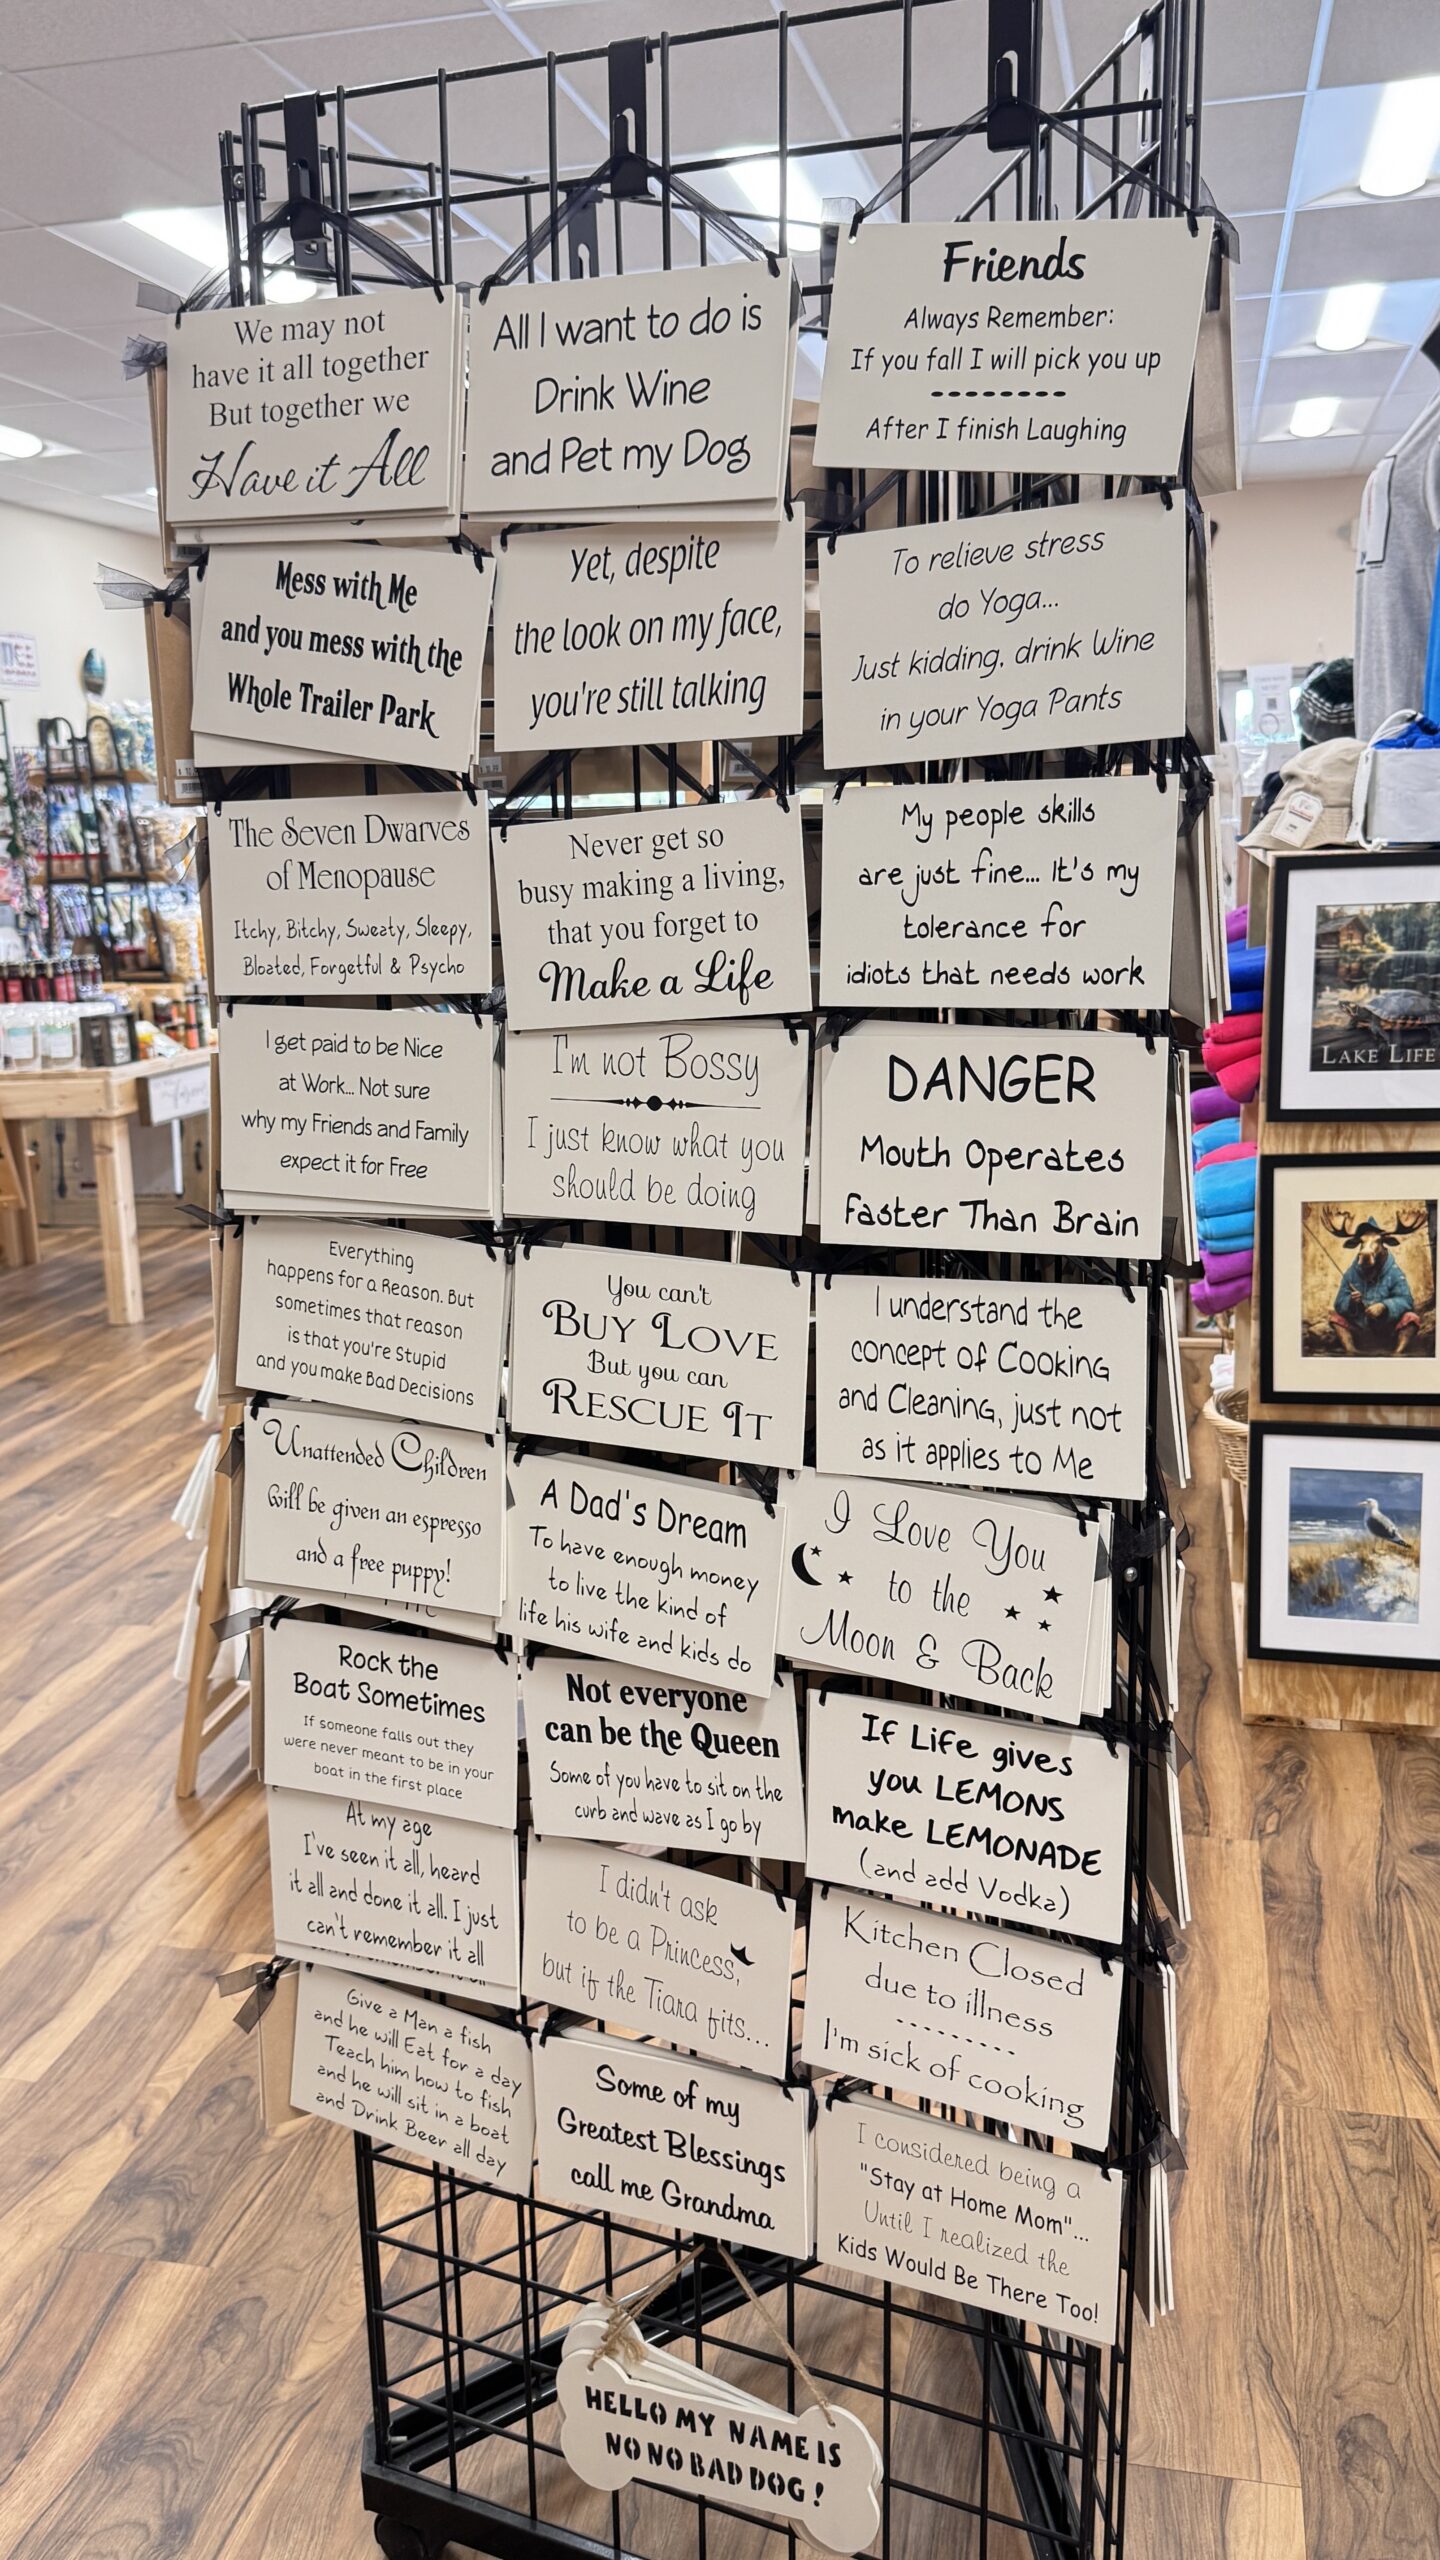 We may not
have it all together
But together we
Have it All
All I want to do is
Drink Wine
and Pet my Dog
Friends
Always Remember:
If you fall I will pick you up
After I finish Laughing
Mess with Me
and you mess with the
Whole Trailer Park
Yet, despite
the look on my face,
you're still talking
To relieve stress
do Yoga...
Just kidding, drink Wine
in your Yoga Pants
The Seven Dwarves
of Menopause
Itchy, Bitchy, Sweaty, Sleepy,
Bloated, Forgetful & Psycho
Never get so
busy making a living,
that you forget to
Make a Life
My people skills
are just fine... It's my
tolerance for
idiots that needs work
I get paid to be Nice
at Work... Not sure
why my Friends and Family
expect it for Free
I'm not Bossy
I just know what you
should be doing
DANGER
Mouth Operates
Faster Than Brain
Everything
happens for a Reason. But
sometimes that reason
is that you're Stupid
and you make Bad Decisions
You can't
BUY LOVE
But you can
RESCUE IT
I understand the
concept of Cooking
and Cleaning, just not
as it applies to Me
Unattended Children
Will be given an espresso
and a free puppy!
A Dad's Dream
To have enough money
to live the kind of
life his wife and kids do
I Love You
to the
Moon & Back
Rock the
Boat Sometimes
If someone falls out they
were never meant to be in your
boat in the first place
Not everyone
can be the Queen
Some of you have to sit on the
curb and wave as I go by
If Life gives
you LEMONS
make LEMONADE
(and add Vodka)
At my age
I've seen it all, heard
it all and done it all. I just
can't remember it all
I didn't ask
to be a Princess,
but if the Tiara fits...
Kitchen Closed
due to illness
I'm sick of cooking
Give a Man a fish
and he will Eat for a day
Teach him how to fish
and he will sit in a boat
and Drink Beer all day
Some of my
Greatest Blessings
call me Grandma
I considered being a
"Stay at Home Mom"...
Until I realized the
Kids Would Be There Too!
HELLO MY NAME IS
NO NO BAD DOG!
LAKE LIFE